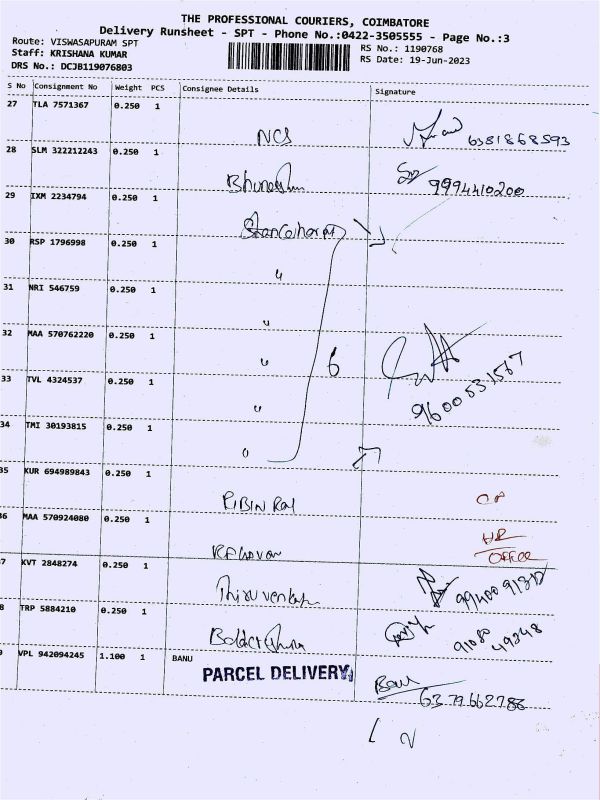 THE PROFESSIONAL COURIERS, COIMBATORE
Delivery Runsheet - SPT - Phone No.:0422-3505555 - Page No.:3
Route: VISWASAPURAM SPT
RS No.: 1190768
Staff: KRISHANA KUMAR
RS Date: 19-Jun-2023
DRS No.: DCJB119076803
S No Consignment No Weight PCS Consignee Details Signature
27 TLA 7571367 0.250 1
NCS 6381868593
28 SLM 322212243 0.250 1
9994410200
29 IXM 2234794 0.250 1
30 RSP 1796998 0.250 1
"
31 NRI 546759 0.250 1
"
32 MAA 570762220 0.250 1
" 6
33 TVL 4324537 0.250 1
9600531567
"
34 TMI 30193815 0.250 1
"
35 KUR 694989843 0.250 1
RIBIN RAJ
36 MAA 570924080 0.250 1
HR
OFFICE
37 KVT 2848274 0.250 1
38 TRP 5884210 0.250 1
91080
49348
39 VPL 942094245 1.100 1 BANU
PARCEL DELIVERY
Banu
6379662786